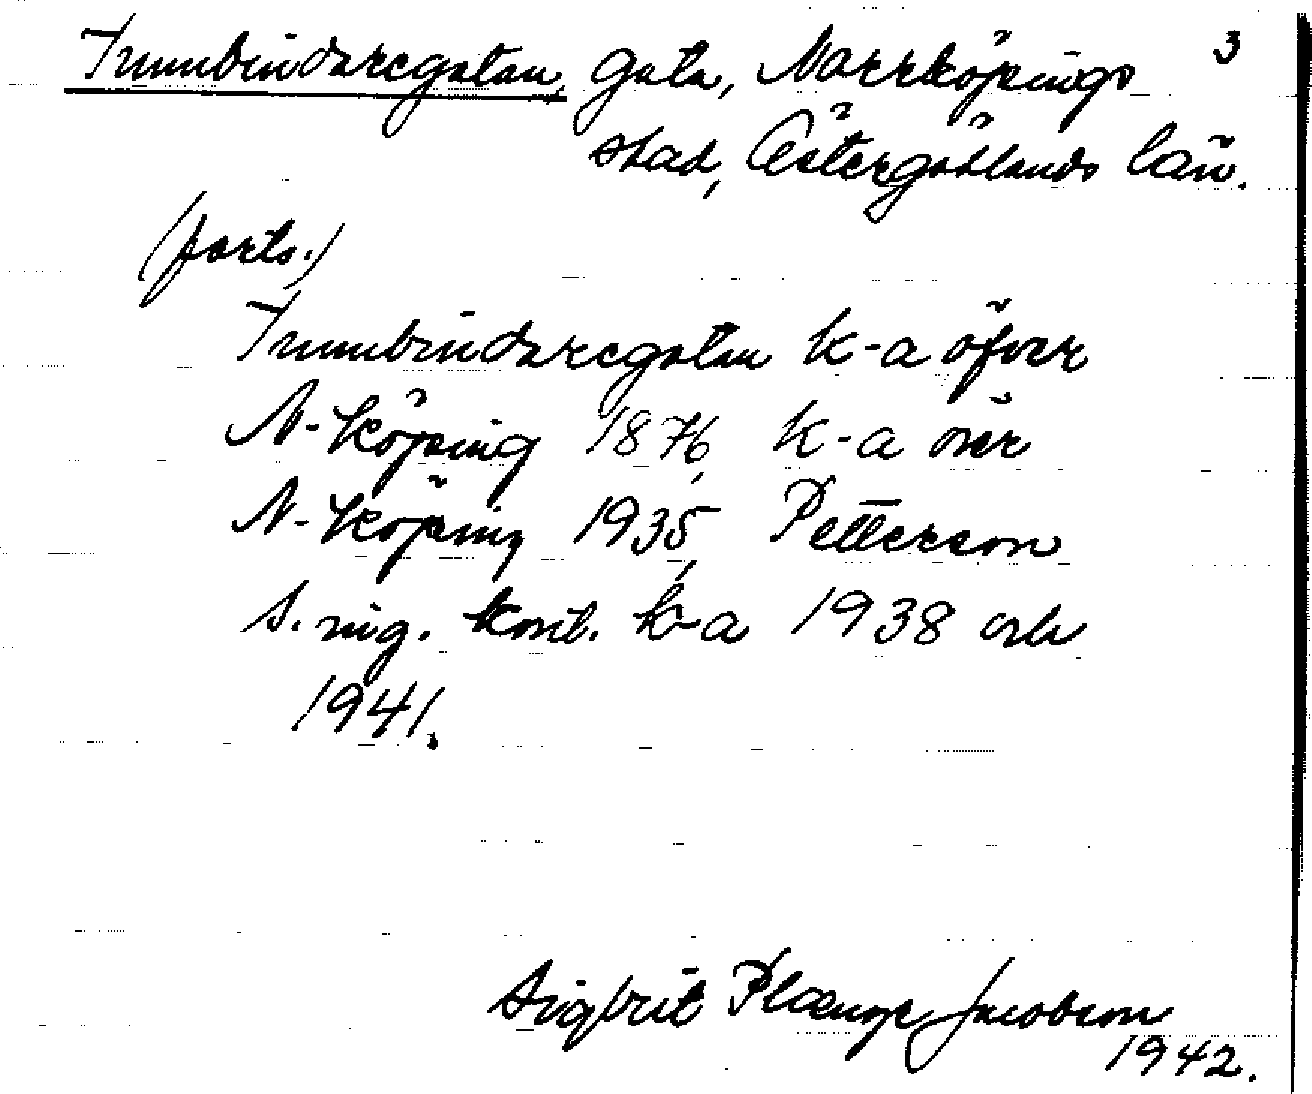 Tunnbindaregatan, gata, Norrköpings 3
stad, Östergötlands län.
(forts.)
Tunnbindaregatan k-a öfver
N-köping 1876, k-a över
N-köping 1935, Petterson
s. ing. kont. k-a 1938 och
1941.
Sigbrit Plænge Jacobson
1942.